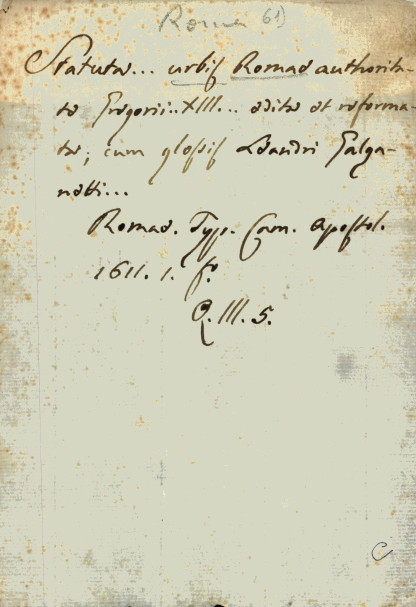 Roma 61)
Statuta... urbis Romae authorita-
te Gregorii..XIII... edita et reforma-
ta; cum glossis Leandri Galga-
netti...
Romae. Typ. Cam. Apostol.
1611. 1. fo.
Q. III. 5.
C